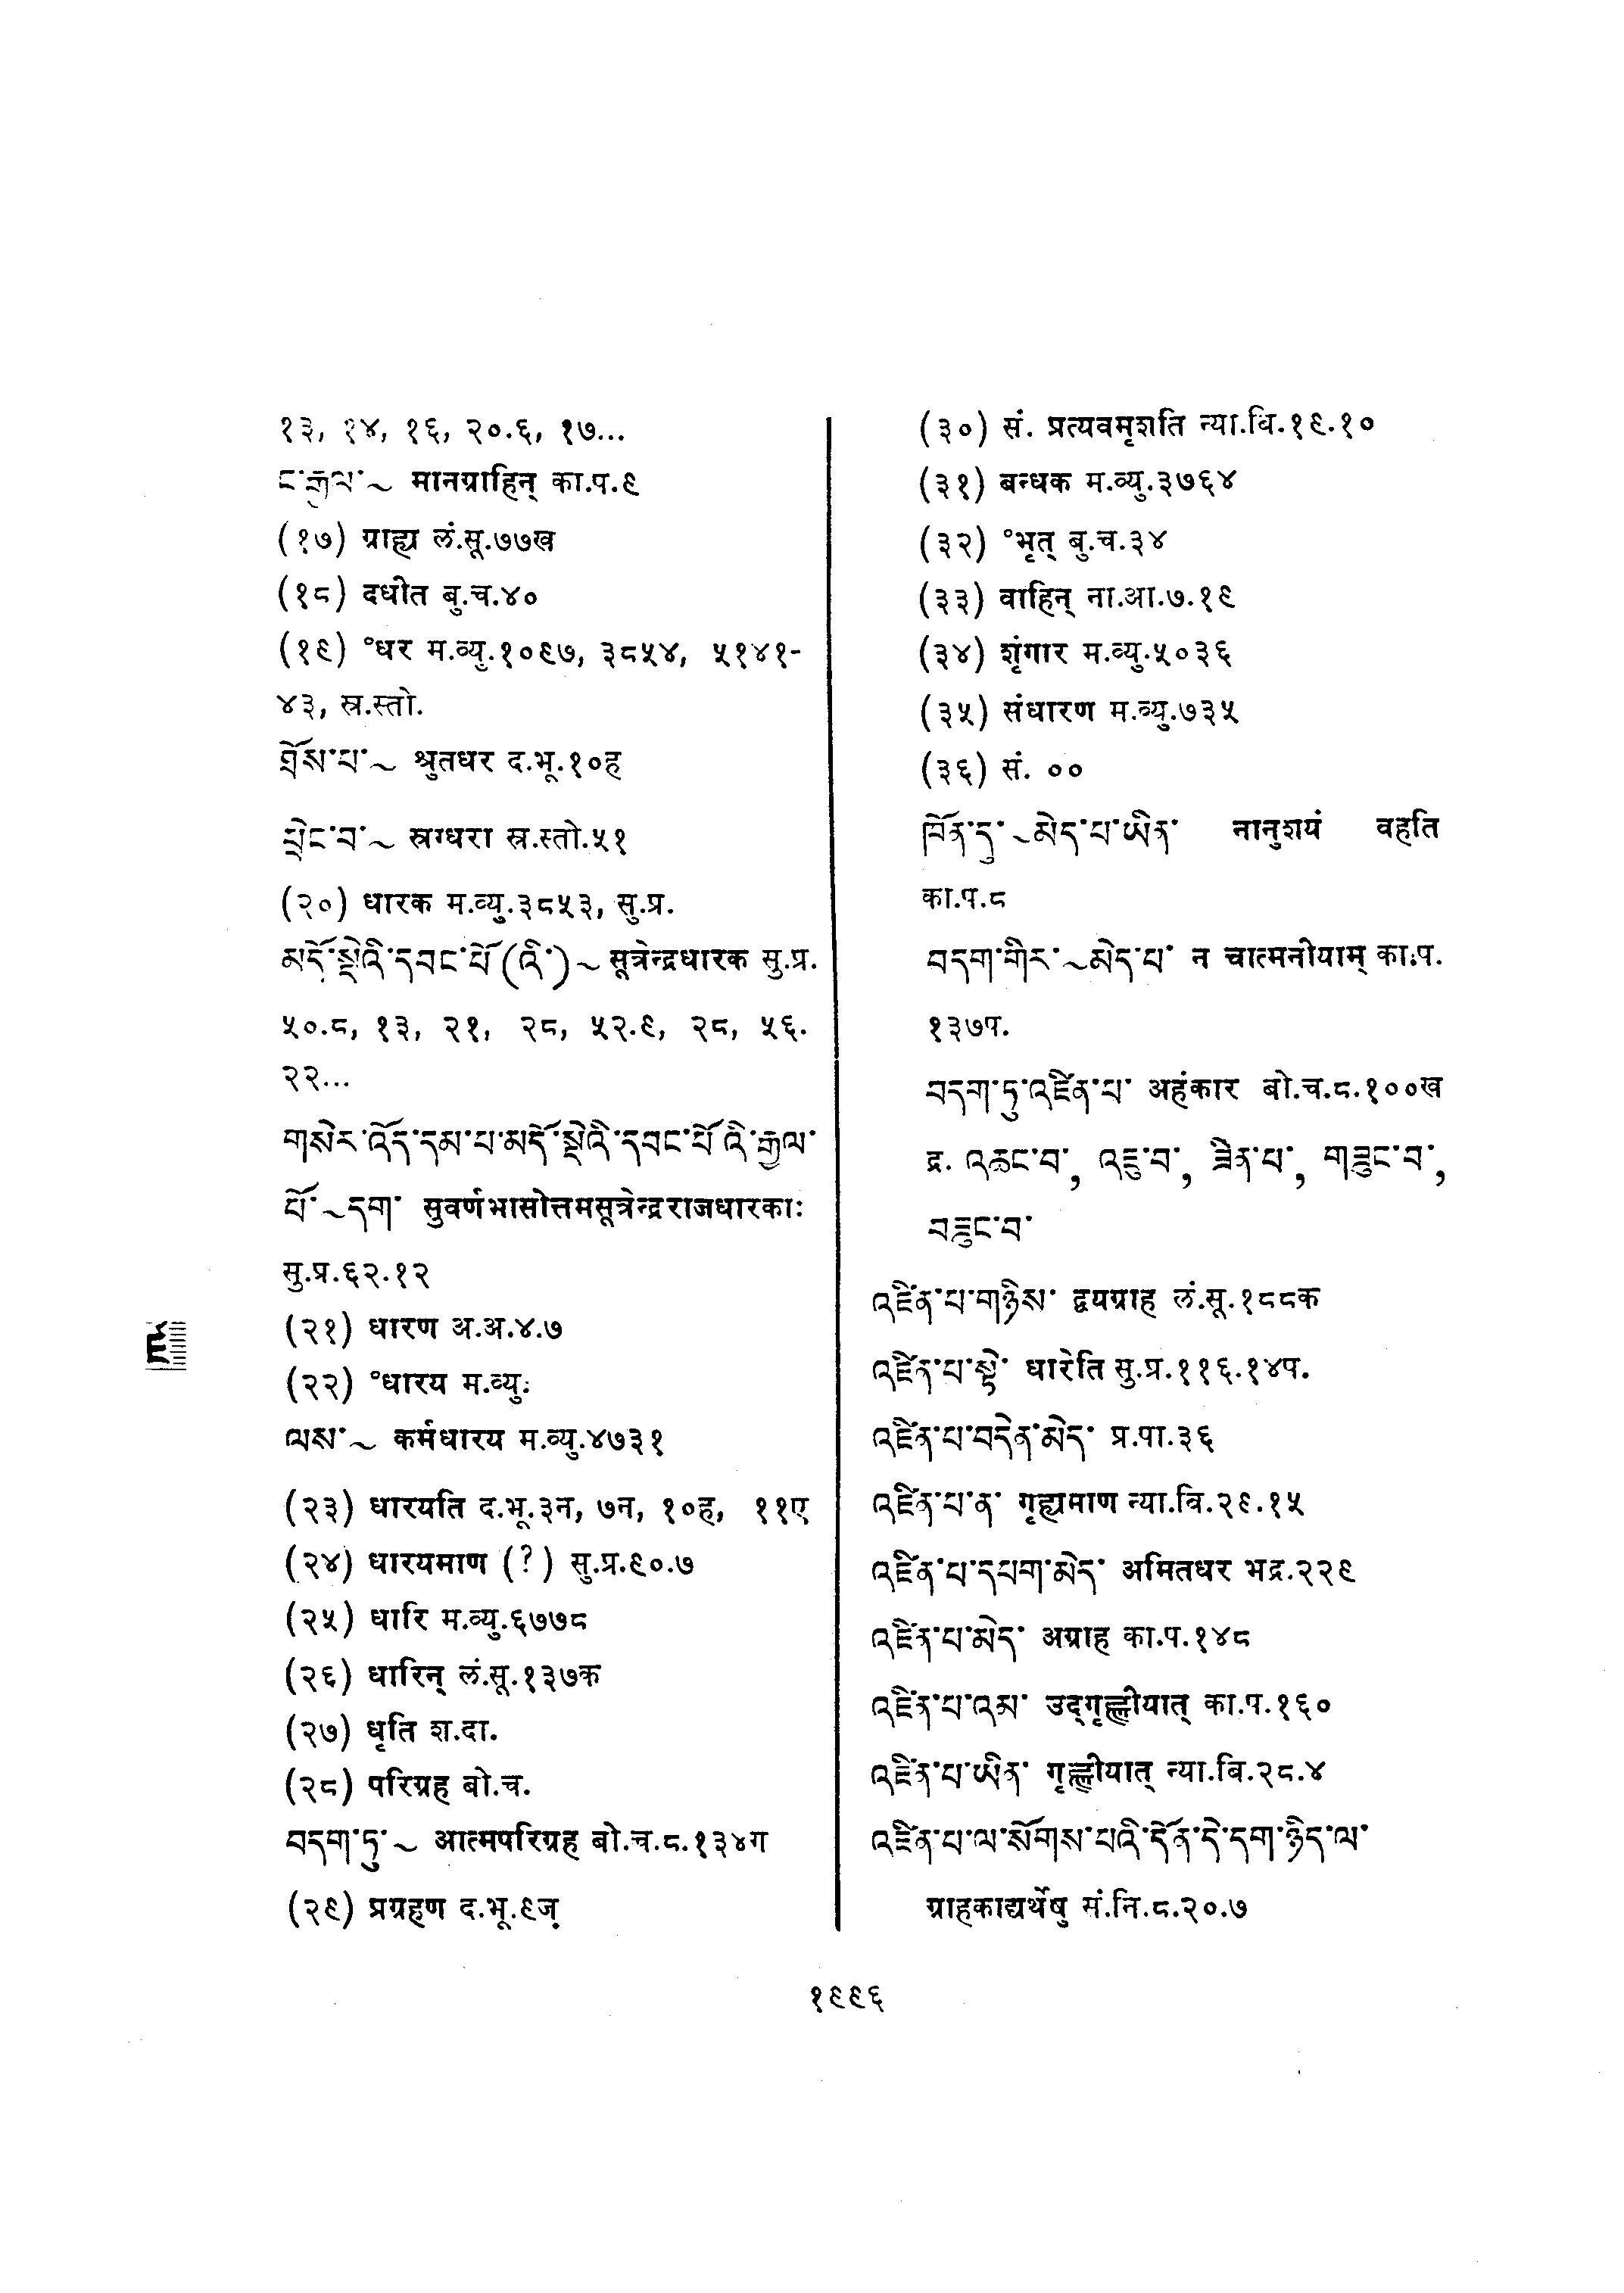 १३, १४, १६, २०.६, १७...
ང་རྒྱལ་~ मानग्राहिन् का.प.९
(१७) ग्राह्य लं.सू.७७ख
(१८) दधीत बु.च.४०
(१९) °धर म.व्यु.१०९७, ३८५४, ५१४१-
४३, स्र.स्तो.
ཐོས་པ་~ श्रुतधर द.भू.१०ह
ཕྲེང་བ་~ स्रग्धरा स्र.स्तो.५१
(२०) धारक म.व्यु.३८५३, सु.प्र.
མདོ་སྡེའི་དབང་པོ(འི་)~ सूत्रेन्द्रधारक सु.प्र.
५०.८, १३, २१, २८, ५२.९, २८, ५६.
२२...
གསེར་འོད་དམ་པ་མདོ་སྡེའི་དབང་པོ་འི་རྒྱལ་
པོ་~དག་ सुवर्णभासोत्तमसूत्रेन्द्रराजधारकाः
सु.प्र.६२.१२
(२१) धारण अ.अ.४.७
(२२) °धारय म.व्यु.:
ལས་~ कर्मधारय म.व्यु.४७३१
(२३) धारयति द.भू.३न, ७न, १०ह, ११ए
(२४) धारयमाण (?) सु.प्र.९०.७
(२५) धारि म.व्यु.६७७८
(२६) धारिन् लं.सू.१३७क
(२७) धृति श.दा.
(२८) परिग्रह बो.च.
བདག་ཏུ་~ आत्मपरिग्रह बो.च.८.१३४ग
(२९) प्रग्रहण द.भू.९ज्
(३०) सं. प्रत्यवमृशति न्या.बि.१९.१०
(३१) बन्धक म.व्यु.३७६४
(३२) °भृत् बु.च.३४
(३३) वाहिन् ना.आ.७.१९
(३४) शृंगार म.व्यु.५०३६
(३५) संधारण म.व्यु.७३५
(३६) सं. ००
ཁོན་དུ་~མེད་པ་ཡིན་ नानुशयं वहति
का.प.८
བདག་གིར་~མེད་པ་ न चात्मनीयाम् का.प.
१३७प.
བདག་ཏུ་འཛིན་པ་ अहंकार बो.च.८.१००ख
द्र. འཆང་བ་, འཛུ་བ་, ཟིན་པ་, གཟུང་བ་,
བཟུང་བ་
འཛིན་པ་གཉིས་ द्वयग्राह लं.सू.१८८क
འཛིན་པ་སྟེ་ धारेति सु.प्र.११६.१४प.
འཛིན་པ་བདེན་མེད་ प्र.पा.३६
འཛིན་པ་ན་ गृह्यमाण न्या.बि.२९.१५
འཛིན་པ་དཔག་མེད་ अमितधर भद्र.२२९
འཛིན་པ་མེད་ अग्राह का.प.१४८
འཛིན་པ་འམ་ उद्गृह्णीयात् का.प.१६०
འཛིན་པ་ཡིན་ गृह्णीयात् न्या.बि.२८.४
འཛིན་པ་ལ་སོགས་པའི་དོན་དེ་དག་ཉིད་ལ་
ग्राहकाद्यर्थेषु सं.नि.८.२०.७
ཛ
१९९६